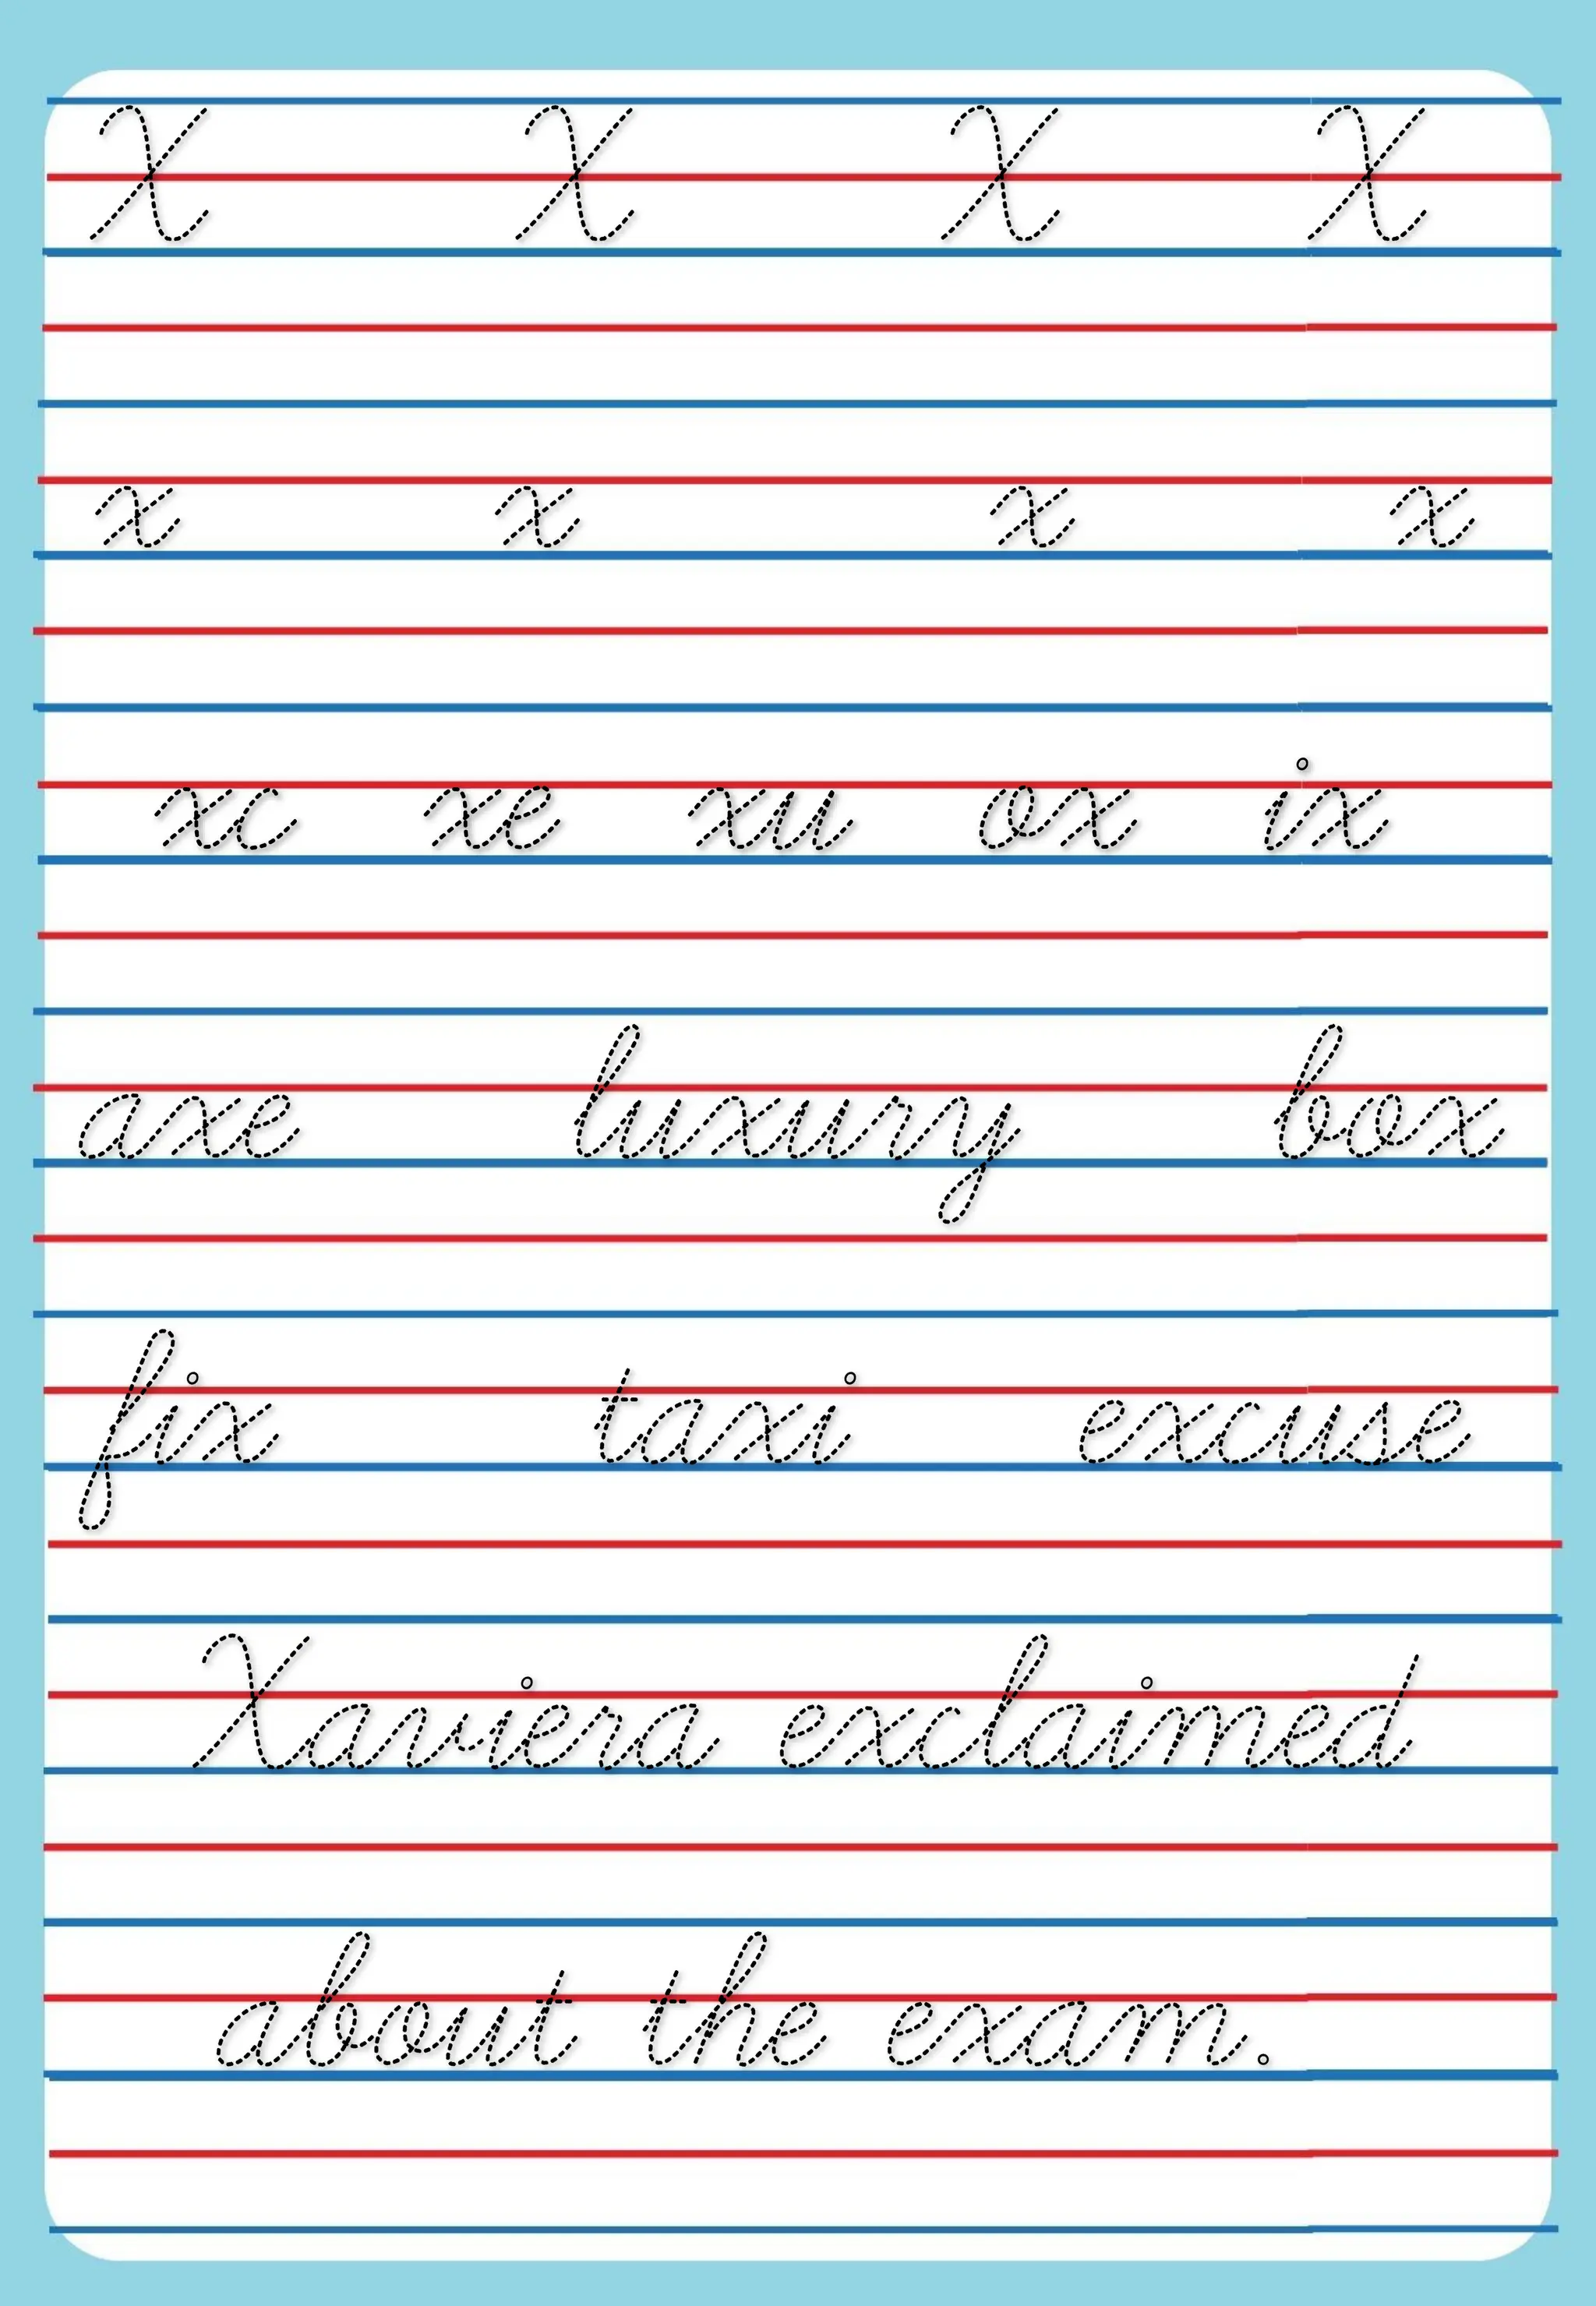 X X X X
x x x x
xc xe xu ox ix
axe luxury box
fix taxi excuse
Xaviera exclaimed
about the exam.